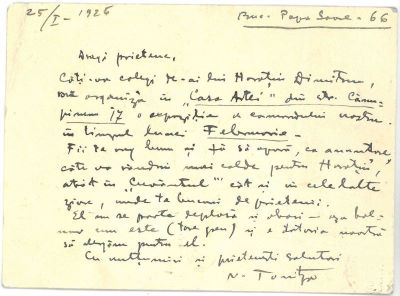 25/I - 1926 Buc. Popa Soare - 66
Dragi prietene,
Câți-va colegi de-ai lui Horațiu Dimitriu,
organiză în "Casa Artei" din str. Câm-
pineanu 17 o expoziție a camaradului nostru
în timpul lunei Februarie -
Fii te rog bun și fă să apară, ca
câte-va rânduri mai calde pentru Horațiu,
atât în "Cuvântul" cât și în celelalte
ziare, unde te bucuri de prieteni.
El nu se poate deplasa și obosi - așa bol-
nav cum este (tare greu) și e datoria noastră
să alergăm pentru el.
Cu mulțumiri și prietenești salutări
N. Tonitza